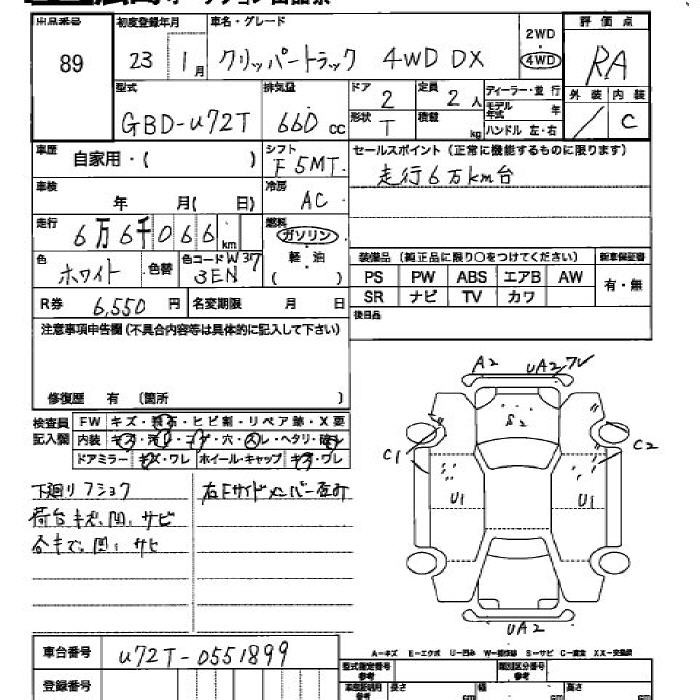 出品番号 初度登録年月 車名・グレード 2WD・4WD 評価点
89 23 1月 クリッパートラック 4WD DX RA
型式 排気量 ドア 2 定員 2人 ディーラー・並行 外装 内装
GBD-U72T 660cc 形状 T 積載 kg モデル年式 年 / C
ハンドル 左・右
車歴 自家用・( ) シフト F5MT セールスポイント(正常に機能するものに限ります)
走行6万km台
車検 年 月( 日) 冷房 AC
走行 6万6千066km 燃料 ガソリン
軽・油
( )
色 ホワイト 色替 色コード W37
3EN
装備品(純正品に限り○をつけてください) 新車保証書
PS PW ABS エアB AW 有・無
SR ナビ TV カワ
R券 6,550円 名変期限 月 日 後日品
注意事項申告欄(不具合内容等は具体的に記入して下さい)
修復歴 有 (箇所 )
検査員記入欄 FW キズ・飛石・ヒビ割・リペア跡・X要
内装 キズ・汚・コゲ・穴・スレ・ヘタリ・
ドアミラー キズ・ワレ ホイール・キャップ キズ・ワレ
下廻リフショク
荷台キズ、凹、サビ
右Fサイドメンバー歪み
A2 UA2 ワレ
S2
C1 C2
U1 U1
UA2
A-キズ E-エクボ U-凹み W-補修跡 S-サビ C-腐食 XX-交換跡
車台番号 U72T-0551899
登録番号
型式指定番号 参考 類別区分番号 参考
長さ 幅 高さ